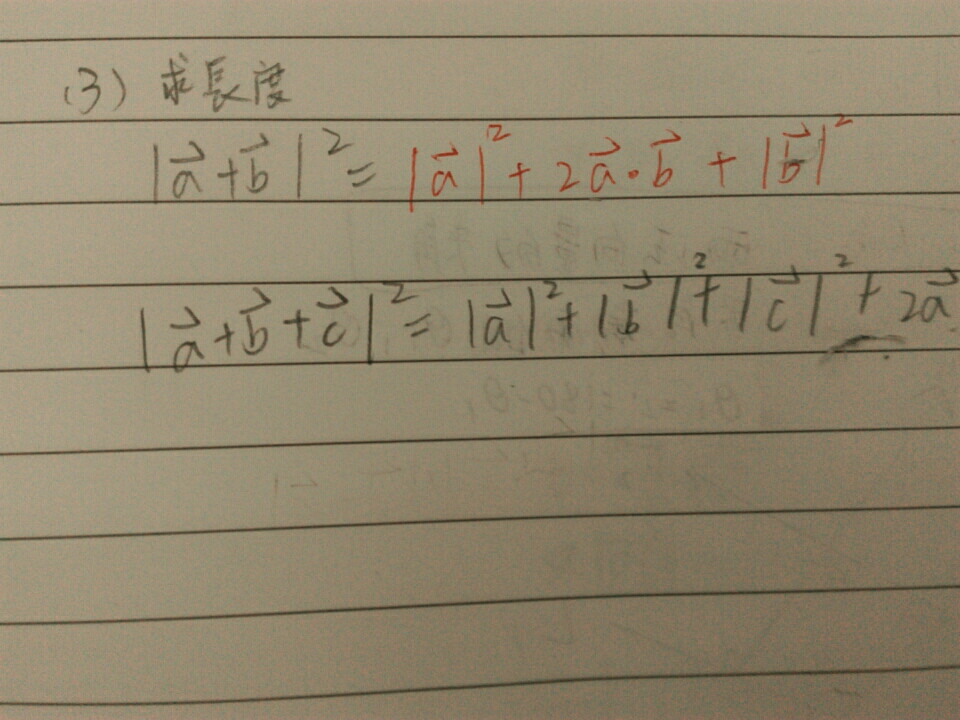 (3) 求長度
|a⃗+b⃗|²=|a⃗|²+2a⃗·b⃗+|b⃗|²
|a⃗+b⃗+c⃗|²=|a⃗|²+|b⃗|²+|c⃗|²+2a⃗